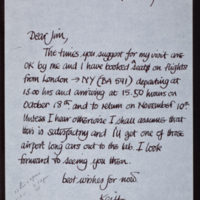 Dear Jim,
The times you suggest for my visit are
OK by me and I have booked seats on flights
from London → NY (BA 591) departing at
13.00 hrs and arriving at 15.50 hours on
October 18th and to return on November 10th.
Unless I hear otherwise I shall assume that
this is satisfactory and I'll get one of those
airport long cars out to the lab. I look
forward to seeing you then.
best wishes for now